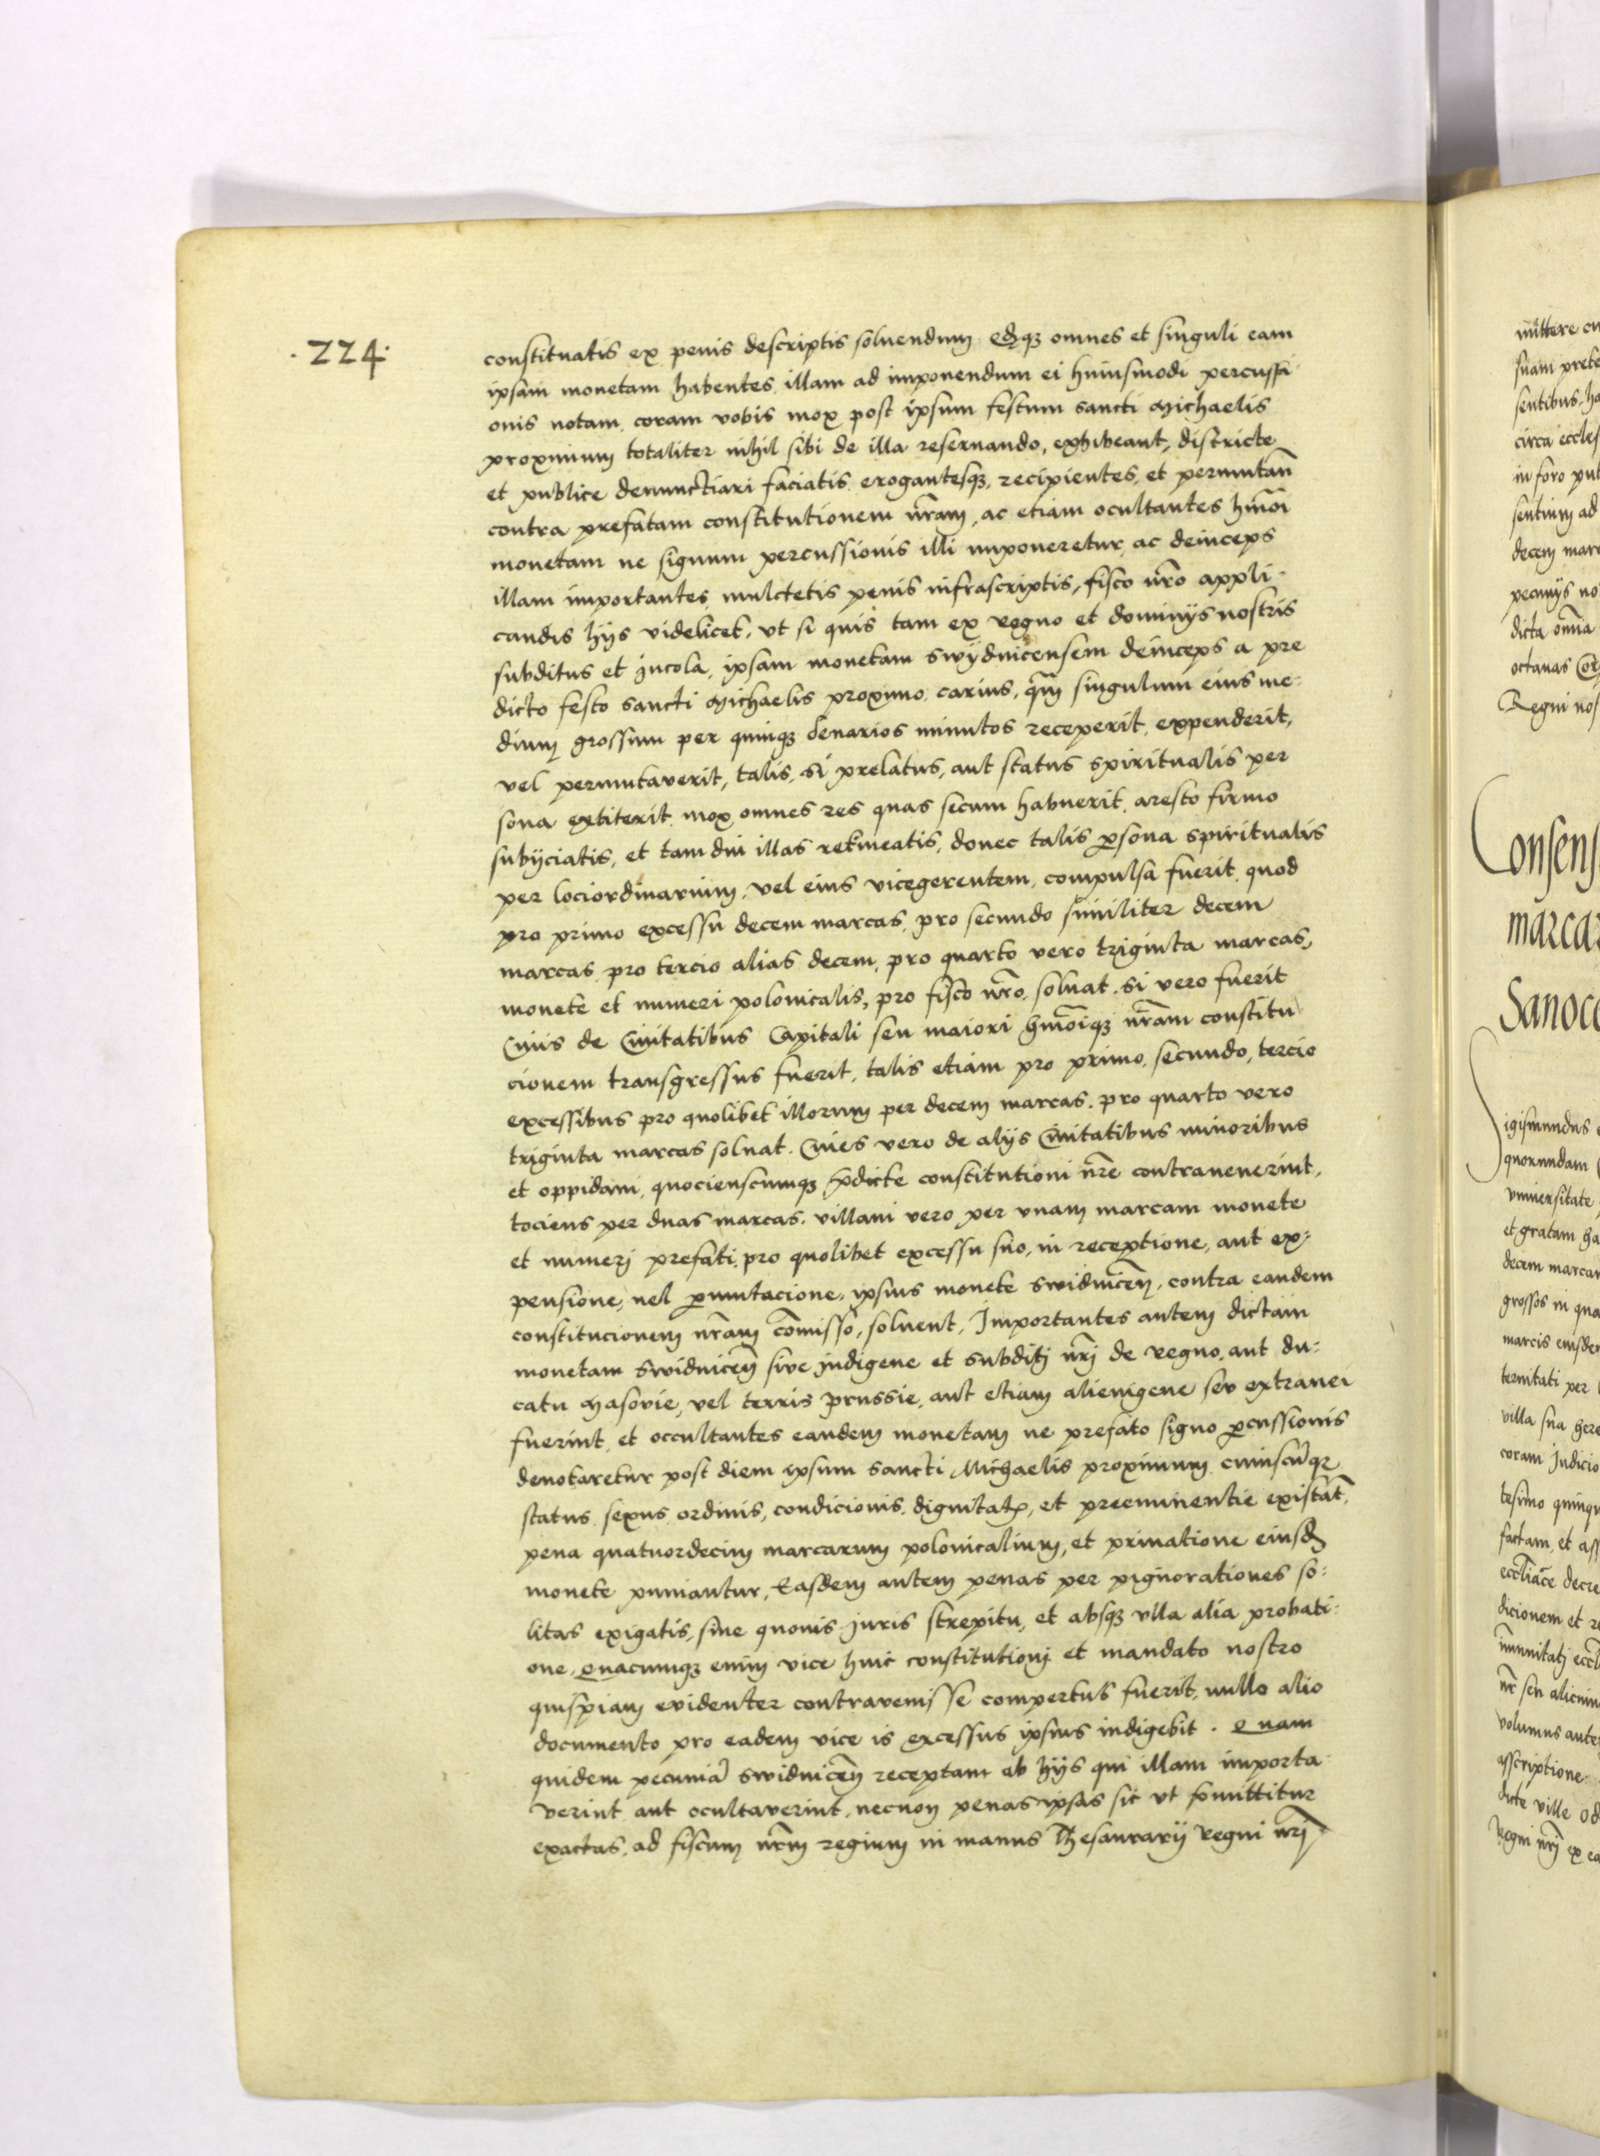 .224.
constituatis ex penis descriptis soluendum eq̃ꝫ omnes et singuli eam
ipsam monetam habentes illam ad imponendum ei huiusmodi percussi
onis notam coram vobis mox post ipsum festum sancti Michaelis
proximum totaliter nihil sibi de illa reseruando, exhibeant, districte
et publice denunctiari faciatis erogantesqꝫ, recipientes, et permutañ
contra prefatam constitutionem nr̃am, ac etiam ocultantes hmõi
monetam ne signum percussionis illi imponeretur, ac deinceps
illam importantes, mulctetis penis infrascriptis, fisco nr̃o appli-
candis hijs videlicet, vt si quis tam ex regno et dominijs nostris
subditus et Incola, ipsam monetam swydnicensem deinceps a pre
dicto festo sancti Michaelis proximo, carius, q̃m singulum eius me-
dium grossum per quinqꝫ denarios minutos receperit, expenderit,
vel permutaverit, talis, si prelatus, aut status spiritualis per
sona extiterit, mox omnes res quas secum habuerit, aresto firmo
subijciatis, et tam diu illas retineatis, donec talis ꝑsona spiritualis
per lociordinarium, vel eius vicegerentem, compulsa fuerit, quod
pro primo excessu decem marcas, pro secundo similiter decem
marcas, pro tercio alias decem, pro quarto vero triginta marcas,
monete et numeri polonicalis, pro fisco nr̃o, soluat. si vero fuerit
Ciuis de Ciuitatibus Capitali seu maiori hmõiqꝫ nr̃am constitu
cionem transgressus fuerit, talis etiam pro primo, secundo, tercio
excessibus pro quolibet illorum per decem marcas, pro quarto vero
triginta marcas soluat. Ciues vero de alijs Ciuitatibus minoribus
et oppidani, quocienscumqꝫ p̃dicte constitutioni nr̃e contrauenerint,
tociens per duas marcas, villani vero per vnam marcam monete
et numerj prefati, pro quolibet excessu suo, in receptione, aut ex-
pensione, uel ꝑmutacione, ipsius monete swidniceñ, contra eandem
constitucionem nr̃am com̃isso, soluent, Importantes autem dictam
monetam swidniceñ sive indigene et subditj nr̃j de regno, aut du-
catu Masovie, vel terris prussie, aut etiam alienigene seu extranei
fuerint, et occultantes eandem monetam ne prefato signo ꝑcussionis
denotaretur post diem ipsum sancti Michaelis proximum cuiuscũqꝫ
status, sexus, ordinis, condicionis, dignitatꝭ, et preeminentie existãt,
pena quatuordecim marcarum polonicalium, et priuatione eiusdꝫ
monete puniantur, Easdem autem penas per pignorationes so-
litas exigatis, sine quouis Juris strepitu, et absqꝫ vlla alia probati-
one, Quacumqꝫ enim vice huic constitutionj et mandato nostro
quispiam evidenter contravenisse compertus fuerit, nullo alio
documento pro eadem vice is excessus ipsius indigebit. Quam
quidem pecuniã swidniceñ receptam ab hijs qui illam importa-
verint aut ocultaverint, necnon penas ipsas sic vt p̃mittitur
exactas, ad fiscum nr̃m regium in manus Thesaurarij Regni nr̃j
mittere
sentibus
in foro
sentium ad
decem
dicta om̃ia
octauas
Regni
Consens
marcar
Sanoc
Sigismundus
quorundam
vniuersitate
et gratam
decem marcar
grossos in
marcis
ternitati per
villa sua
coram Judicio
tesimo
factam, et
dicionem et
volumus
asscriptione
dicte ville
Regni nr̃j ex